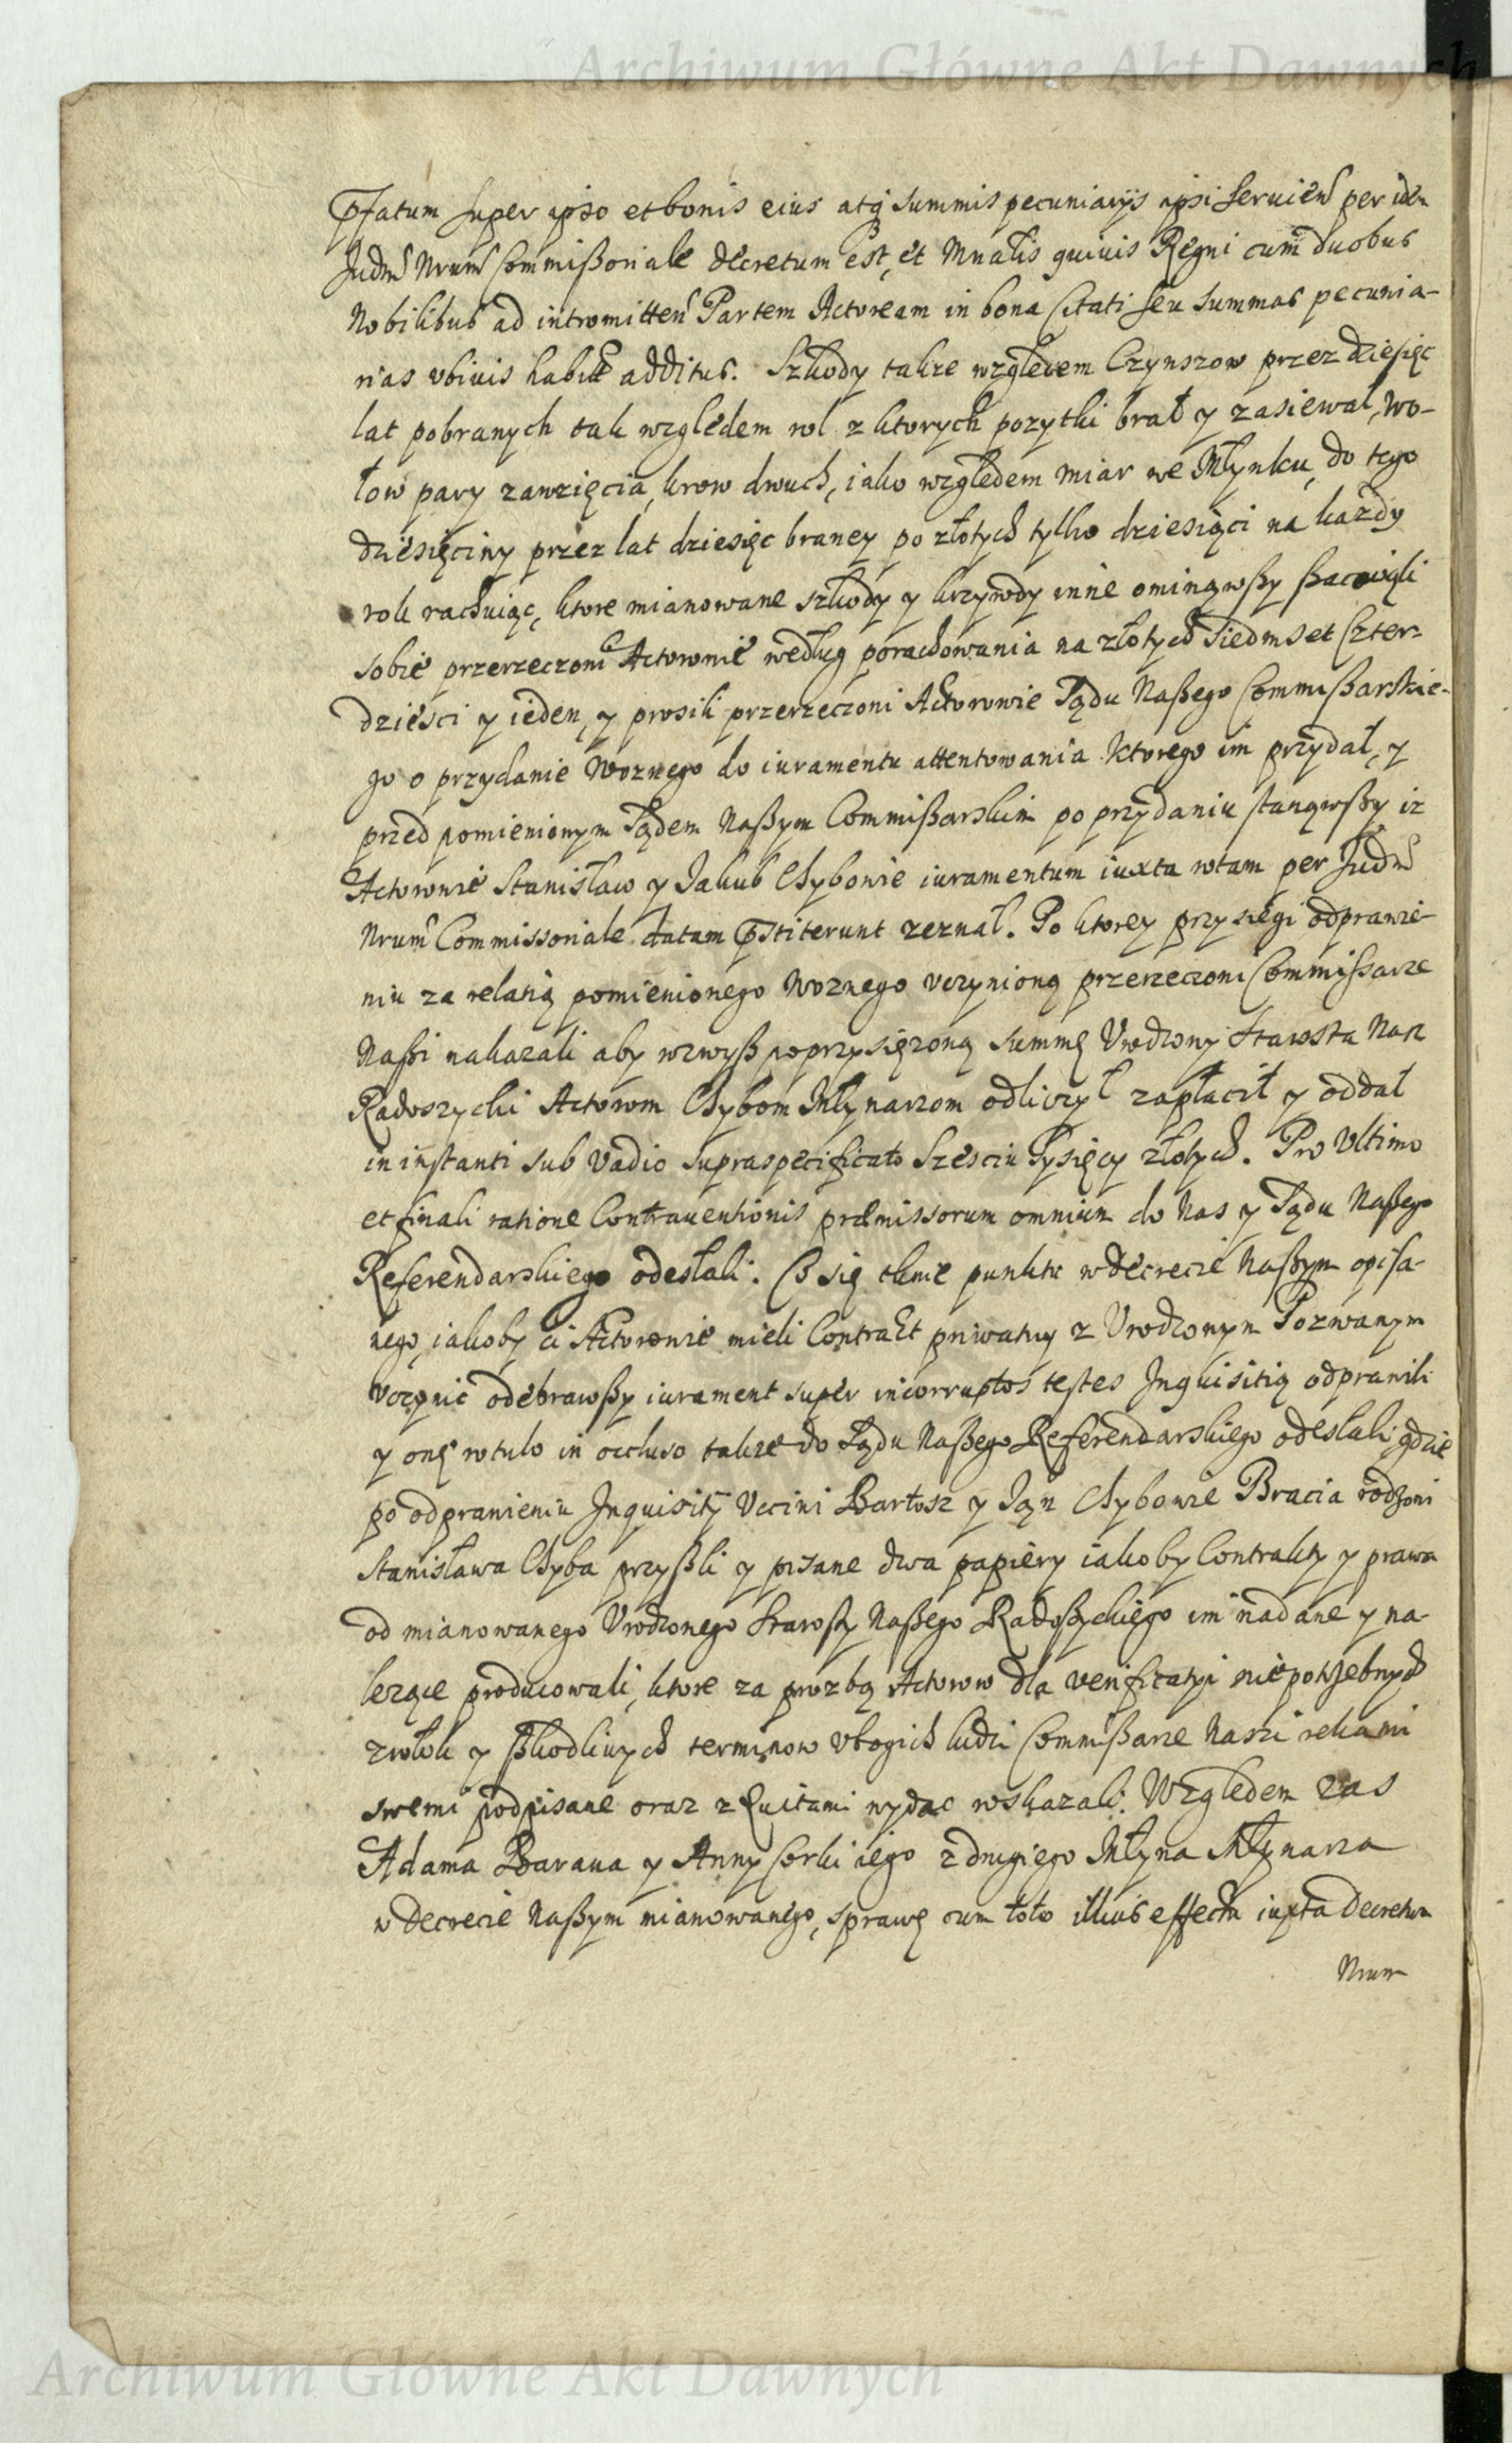 Archiwum Główne Akt Dawnych
Pfatum super ipso et bonis eius atq summis pecuniarijs ipsi seruien per iden
Judm Nrum Commißoriale decretum est, et Mnalis quiuis Regni cum duobus
Nobilibus ad intromitten Partem Actoream in bona Citati seu summas pecunia-
rias vbiuis habit additus. Szkody takze względem Czynszow przez dziesięc
lat pobranych tak względem rol z ktorych pozytki brał y zasiewał, wo-
łow pary zawzięcia, krow dwuch, iako względem miar we Młynku, do tego
dziesięciny przez lat dziesięc braney po złotych tylko dziesiąci na kazdy
rok rachuiąc, ktore mianowane szkody y krzywdy inne ominąwßy ßacowali
sobie przerzeczoni Actorowie według porachowania na złotych siedmset Czter-
dziesci y ieden, y prosili przerzeczoni Actorowie Sądu Naßego Commißarskie-
go o przydanie Woznego do iuramentu attentowania ktorego im przydał, y
przed pomienionym Sądem Naßym Commißarskim po przydaniu stanąwßy iz
Actorowie Stanisław y Jakub Chybowie iuramentum iuxta rotam per Judm
Nrum Commissoriale datam Pstiterunt zeznał. Po ktorey przysięgi odprawie-
niu za relatią pomienionego Woznego vczynioną przerzeczoni Commißarze
Naßi nakazali aby wzwyß poprzysięzoną summę Vrodzony Starosta Nasz
Radoszycki Actorom Chybom Młynarzom odliczył zapłacił y oddał
in instanti sub vadio supraspecificato Szesciu Tysięcy złotych. Pro Vltimo
et finali ratione Contrauentionis præmissorum omnium do Nas y Sądu Naßego
Referendarskiego odesłali. Co się tknie punktu w decrecie Naßym opisa-
nego, iakoby ci Actorowie mieli Contrakt priwatny z Vrodzonym Pozwanym
vczynic odebrawßy iurament super incorruptos testes Inquisitią odprawili
y onę rotulo in occluso takze do Sądu Naßego Referendarskiego odesłali, gdzie
po odprawieniu Inquisity Vccini Bartosz y Jąn Chybowie Bracia rodzoni
Stanisława Chyba przyßli y pisane dwa papiery iakoby Contrakty y prawa
od mianowanego Vrodzonego Starosty Naßego Radoßyckiego im nadane y na-
lezące producowali, ktore za prozbą Actorow dla verificatyi niepotrzebnych
zwłok y ßkodliwych terminow vbogich ludzi Commißarze Naszi rekami
swemi podpisane oraz z Quitami wydac wskazali. Względem zas
Adama Barana y Anny Corki iego z drugiego Młyna Młynarza
w decrecie Naßym mianowanego, sprawę cum toto illius effectu iuxta decretum
Nrum
Archiwum Główne Akt Dawnych